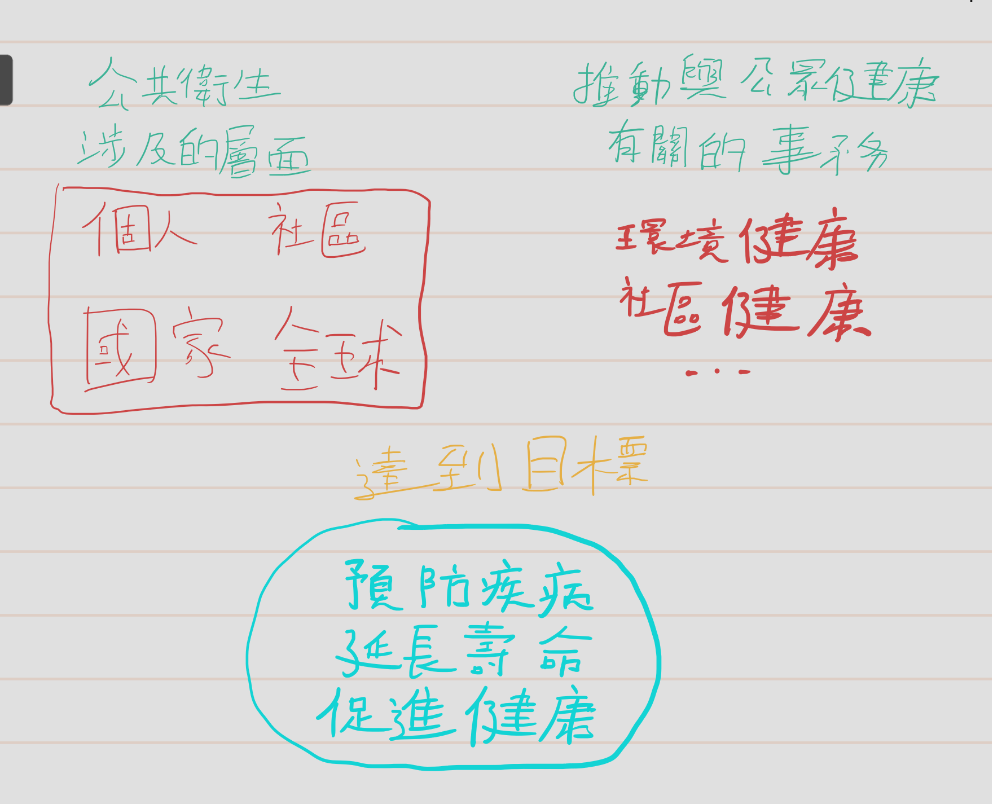 公共衛生
涉及的層面
個人 社區
國家 全球
推動與公眾健康
有關的事務
環境健康
社區健康
...
達到目標
預防疾病
延長壽命
促進健康